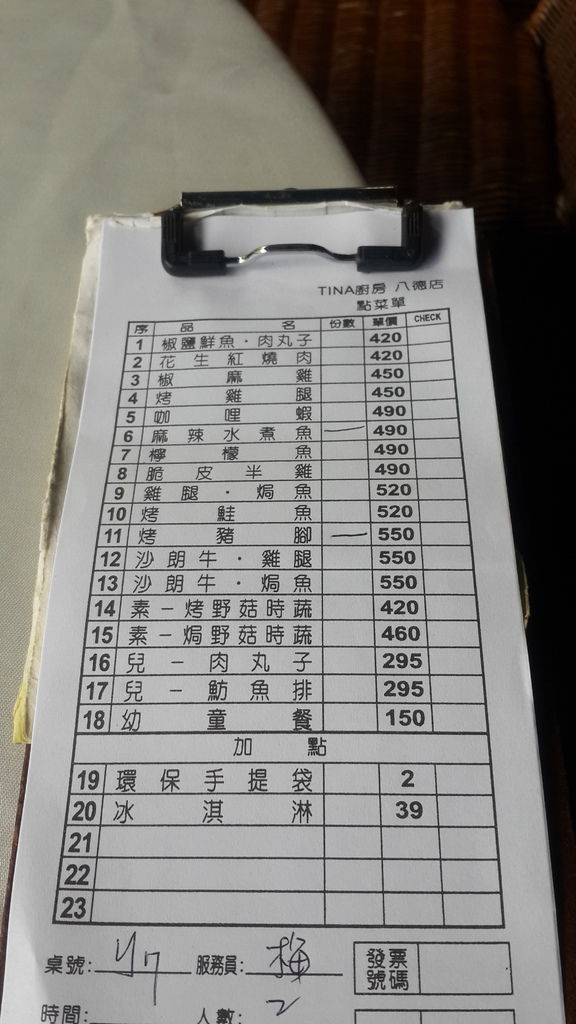 TINA廚房 八德店
點菜單
序 品名 份數 單價 CHECK
1 椒鹽鮮魚·肉丸子 420
2 花生紅燒肉 420
3 椒麻雞 450
4 烤雞腿 450
5 咖哩蝦 490
6 麻辣水煮魚 一 490
7 檸檬魚 490
8 脆皮半雞 490
9 雞腿·焗魚 520
10 烤鮭魚 520
11 烤豬腳 一 550
12 沙朗牛·雞腿 550
13 沙朗牛·焗魚 550
14 素-烤野菇時蔬 420
15 素-焗野菇時蔬 460
16 兒-肉丸子 295
17 兒-魴魚排 295
18 幼童餐 150
加點
19 環保手提袋 2
20 冰淇淋 39
21
22
23
桌號: 服務員: 梅 發票號碼
時間: 人數: 2